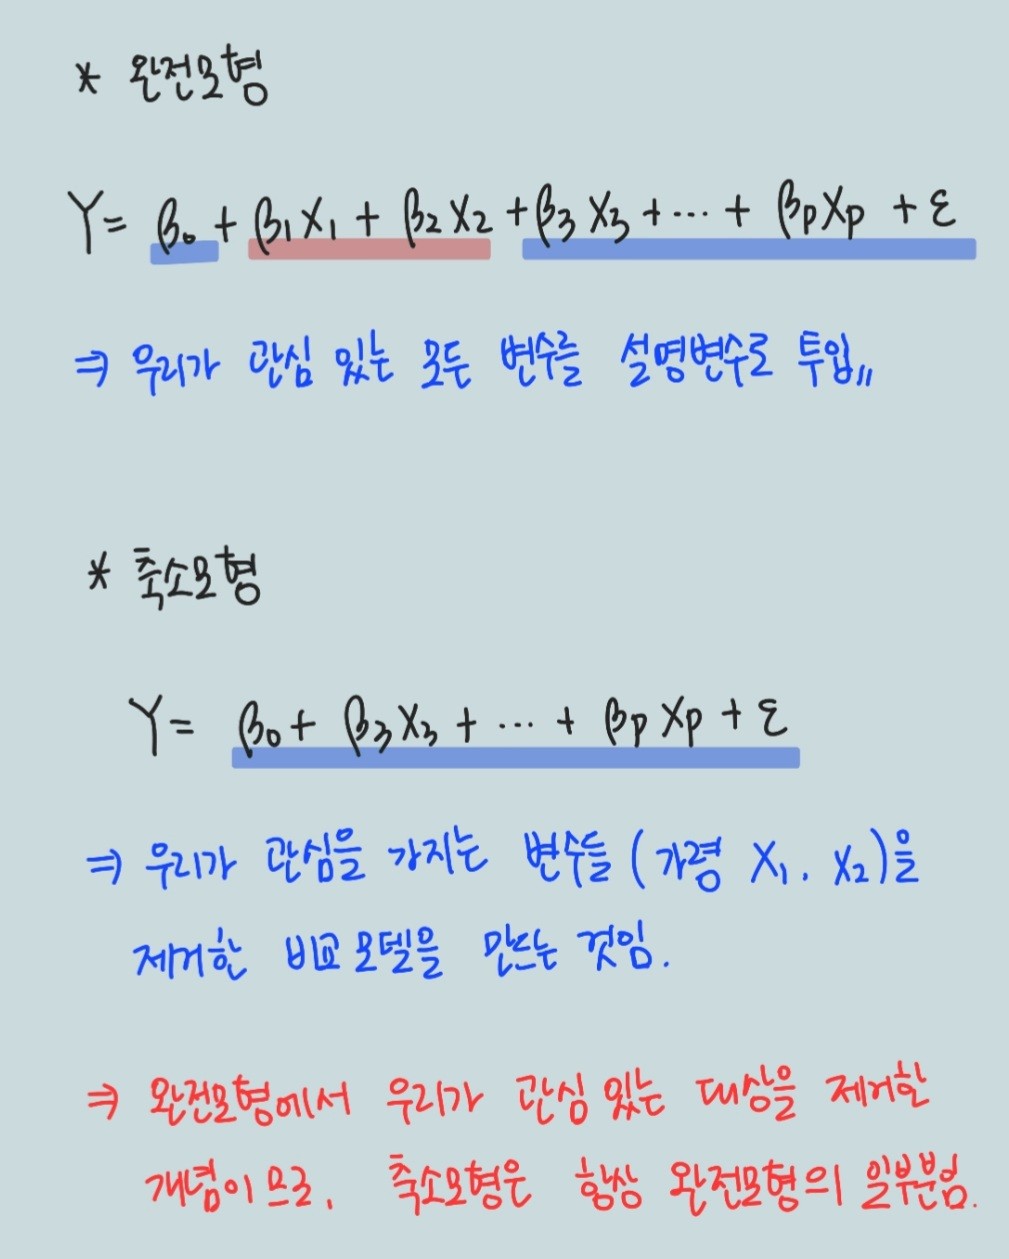 * 완전모형
Y = β₀ + β₁X₁ + β₂X₂ + β₃X₃ + ... + βpXp + ε
⇒ 우리가 관심 있는 모든 변수를 설명변수로 투입〃
* 축소모형
Y = β₀ + β₃X₃ + ... + βpXp + ε
⇒ 우리가 관심을 가지는 변수들 (가령 X₁, X₂)을
제거한 비교 모델을 만드는 것임.
⇒ 완전모형에서 우리가 관심 있는 대상을 제거한
개념이므로, 축소모형은 항상 완전모형의 일부분임.